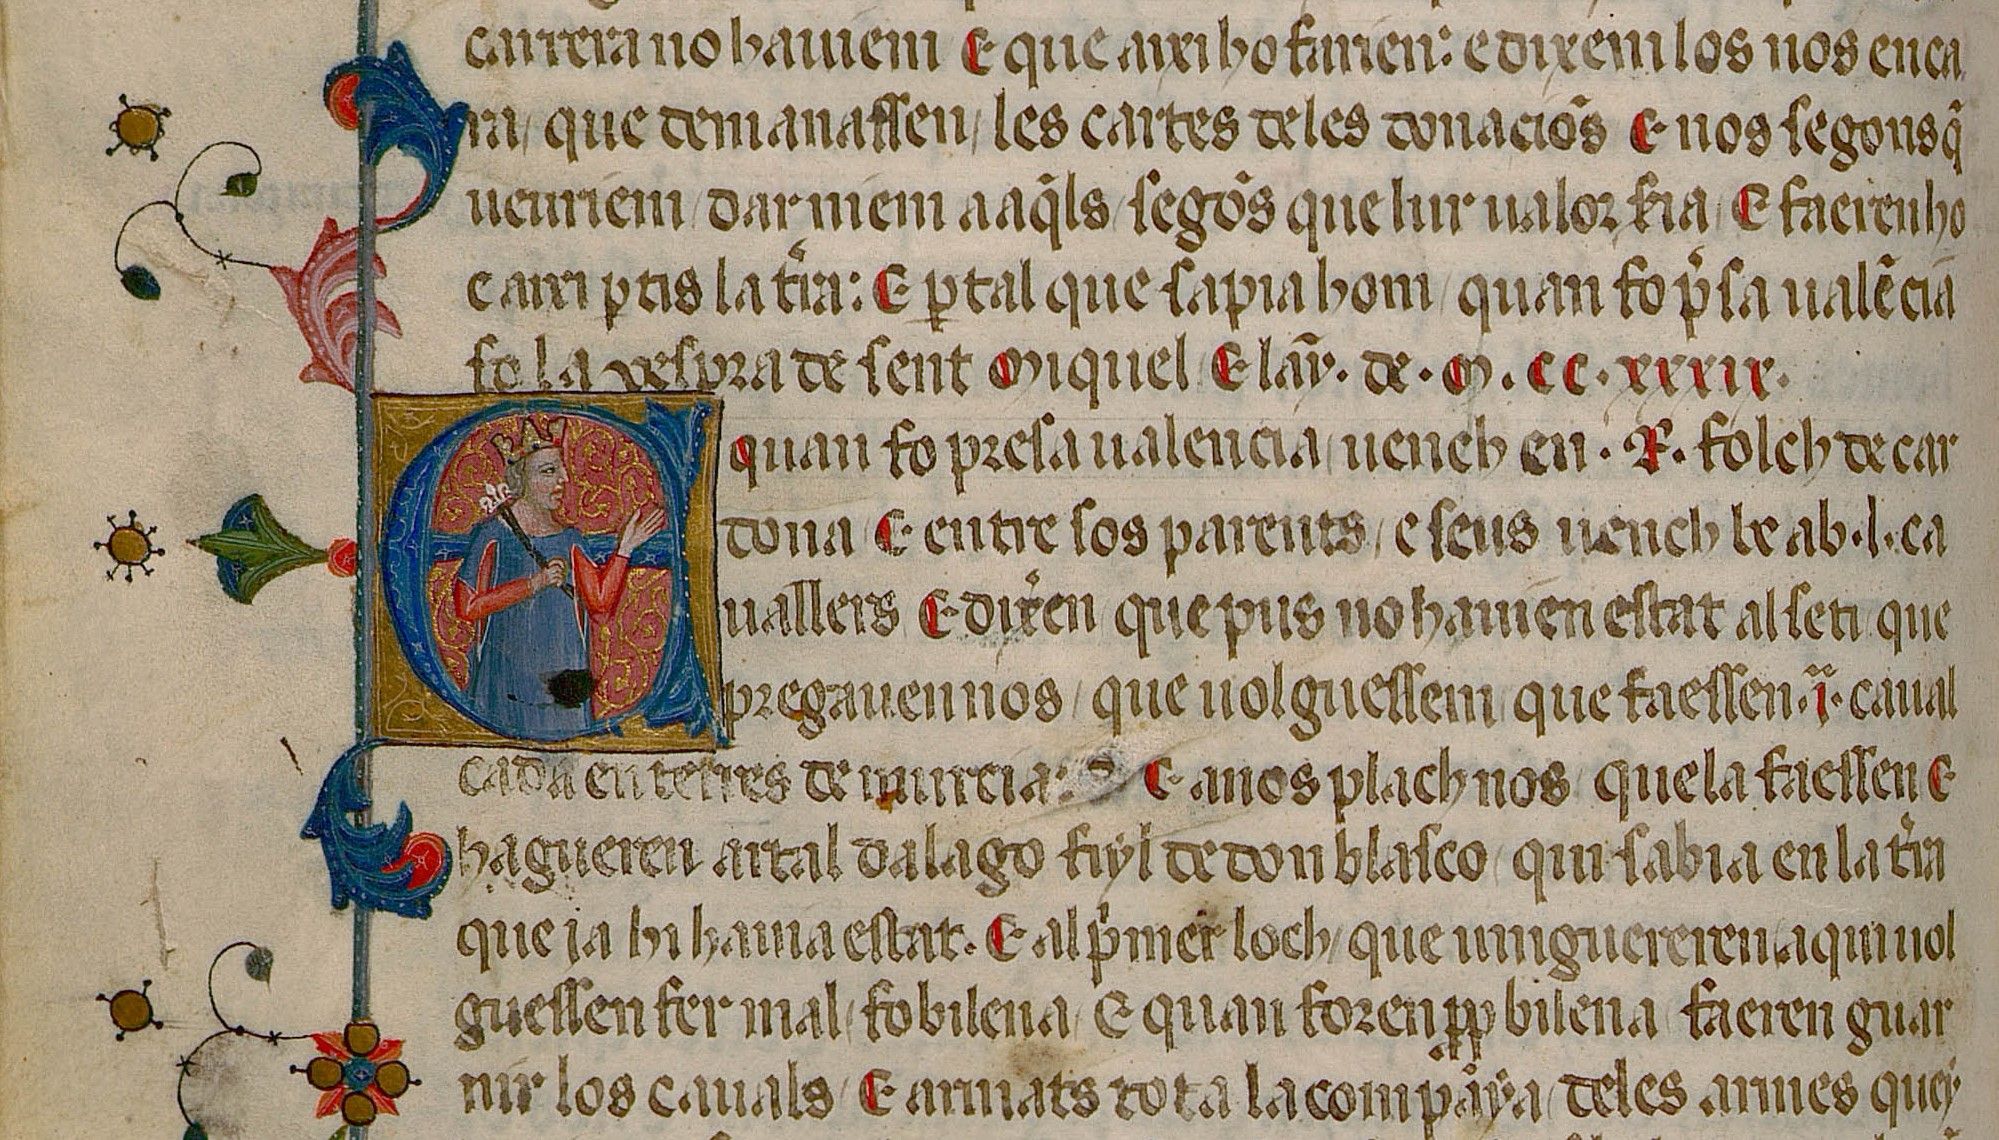 carrera no hauiem E que axi ho farien: e dixem los nos enca
ra, que demanassen, les cartes de les donaciõs E nos segons q̃
ueuriem, dar niem a aq̃ls, segõs que lur ualor sia, E faeren ho
e axi ptis la tr̃ra: E ꝑ tal que sapia hom, quan fo p̃sa ualẽcia
fo la vespra de sent Miquel, E lãy. de. M. CC. xxxix.
E quan fo presa ualencia, uench en. R. folch de car
dona E entre sos parents, e seus uench be ab .l. ca
uallers E dix̃en que pus no hauien estat al seti que
pregauen nos, que uolguessem que faessen .i.ᵃ caual
cada en terres de murcia: E a nos plach nos, que la faessen E
hagueren artal dalago fiyl de don blasco, qui sabia en la tr̃ra
que ja hi hauia estat. E al p̃mer loch, que uinguereren, aqui uol
guessen fer mal, fo bilena, E quan foren ꝓp bilena faeren guar
nir los cauals, E armats tota la compãya, de les armes quey